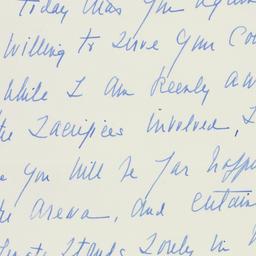 Today was you again
willing to serve your Cou
while I am keenly aw
the Sacrifices involved, I
e you will be far happ
he arena, and certain
Stands Sorely in n